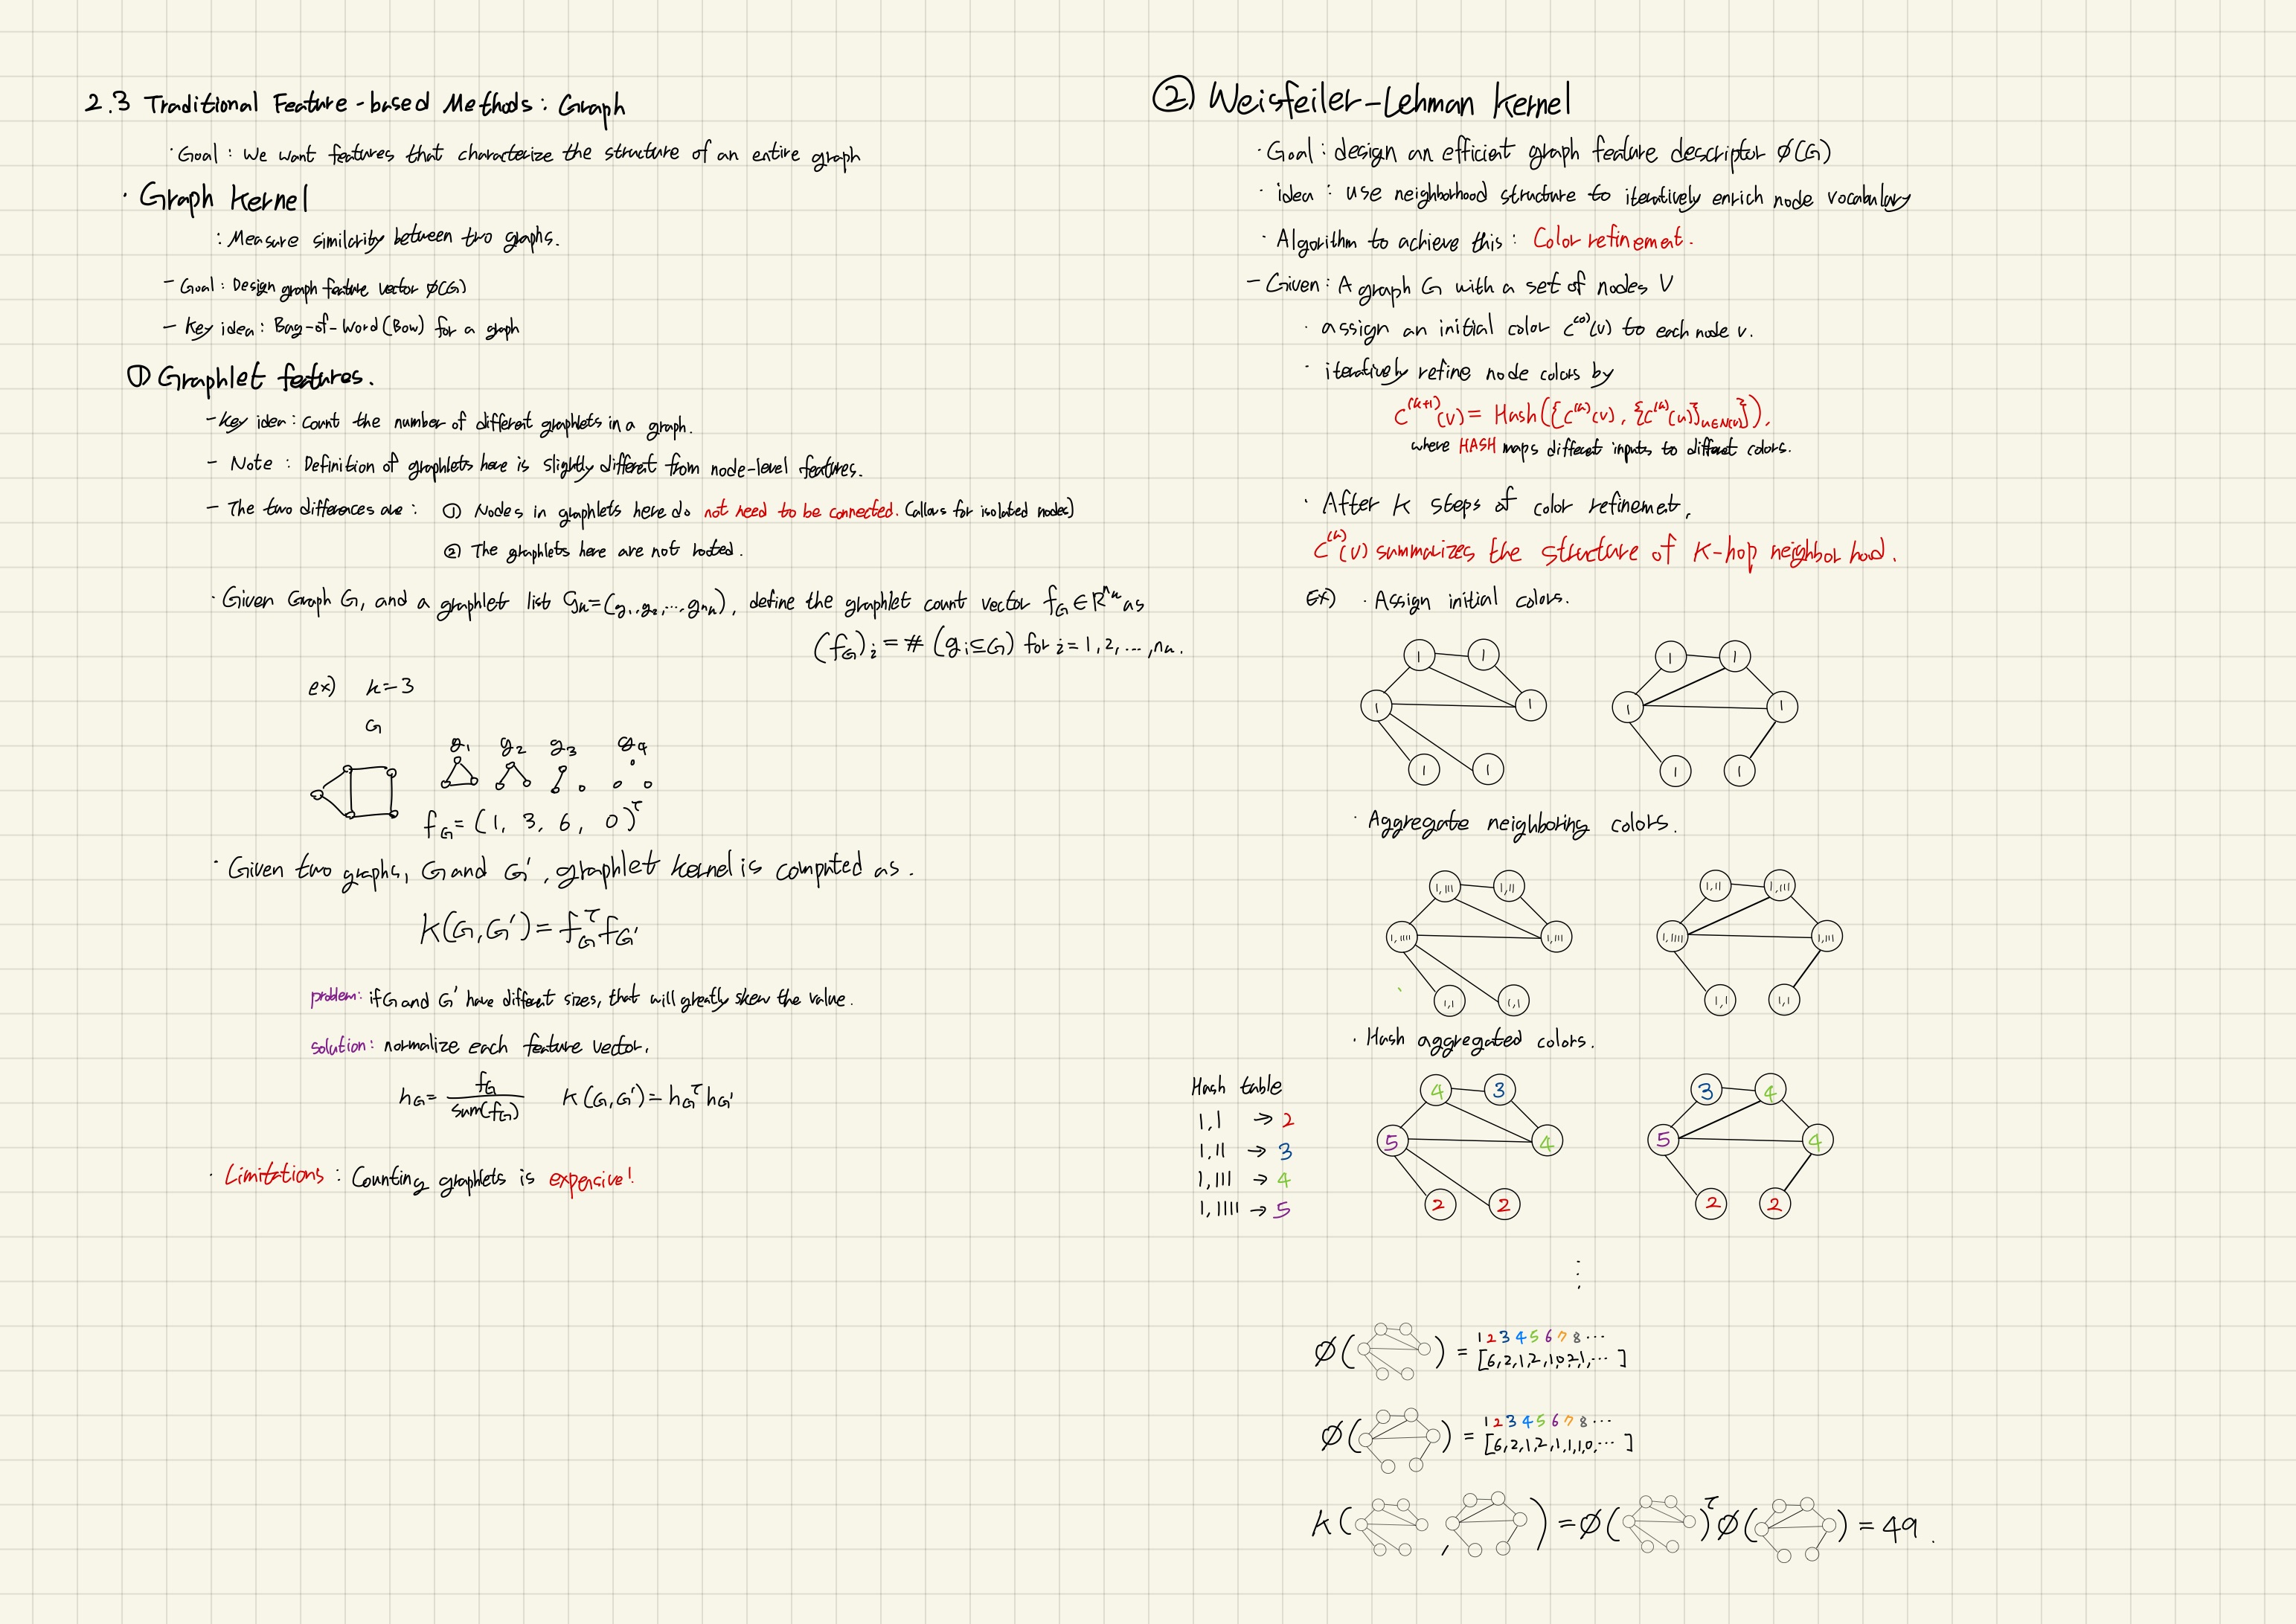 2.3 Traditional Feature-based Methods: Graph
· Goal : We want features that characterize the structure of an entire graph
· Graph Kernel
: Measure similarity between two graphs.
- Goal : Design graph feature vector ϕ(G)
- Key idea : Bag-of-Word (BoW) for a graph
① Graphlet features.
- Key idea : Count the number of different graphlets in a graph.
- Note : Definition of graphlets here is slightly different from node-level features.
- The two differences are : ① Nodes in graphlets here do not need to be connected. (allows for isolated nodes)
② The graphlets here are not rooted.
· Given Graph G, and a graphlet list Gₖ=(g₁,g₂,…,gₙₖ), define the graphlet count vector f_G ∈ R^nₖ as
(f_G)ᵢ = # (gᵢ⊆G) for i=1,2,…,nₖ.
ex) k=3
G
g₁ g₂ g₃ g₄
f_G = (1, 3, 6, 0)ᵀ
· Given two graphs, G and G', graphlet kernel is computed as.
K(G,G') = f_Gᵀ f_G'
problem: if G and G' have different sizes, that will greatly skew the value.
solution: normalize each feature vector.
h_G = f_G / sum(f_G) K(G,G') = h_Gᵀ h_G'
· Limitations : Counting graphlets is expensive!
② Weisfeiler-Lehman Kernel
· Goal : design an efficient graph feature descriptor ϕ(G)
· idea : use neighborhood structure to iteratively enrich node vocabulary
· Algorithm to achieve this : Color refinement.
- Given : A graph G with a set of nodes V
· assign an initial color c⁽⁰⁾(v) to each node v.
· iteratively refine node colors by
c⁽ᵏ⁺¹⁾(v) = Hash({c⁽ᵏ⁾(v), {c⁽ᵏ⁾(u)}u∈N(v)}),
where HASH maps different inputs to different colors.
· After K steps of color refinemet,
C⁽ᵏ⁾(v) summarizes the structure of K-hop neighborhood.
Ex) · Assign initial colors.
1 1 1 1
1 1 1 1
1 1 1 1
· Aggregate neighboring colors.
1,111 1,11 1,11 1,111
1,1111 1,111 1,1111 1,111
1,1 1,1 1,1 1,1
· Hash aggregated colors.
Hash table
1,1 → 2
1,11 → 3
1,111 → 4
1,1111 → 5
4 3 3 4
5 4 5 4
2 2 2 2
⋮
1 2 3 4 5 6 7 8 ⋯
ϕ( ) = [6,2,1,2,1,0,2,1,⋯ ]
1 2 3 4 5 6 7 8 ⋯
ϕ( ) = [6,2,1,2,1,1,1,0,⋯ ]
K( , ) = ϕ( )ᵀ ϕ( ) = 49.